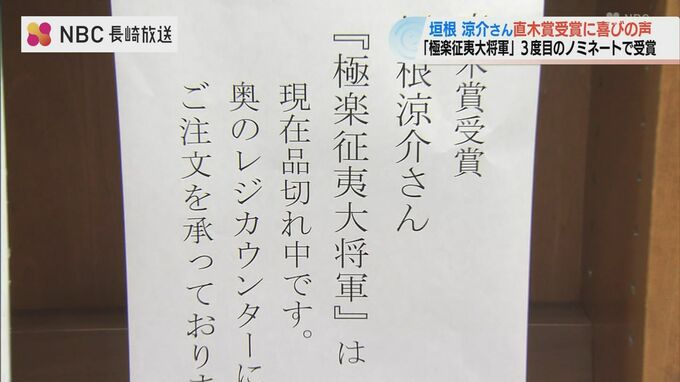 NBC 長崎放送
垣根 涼介さん直木賞受賞に喜びの声
「極楽征夷大将軍」3度目のノミネートで受賞
木賞受賞
根涼介さん
『極楽征夷大将軍』は
現在品切れ中です。
奥のレジカウンターに
ご注文を承っており